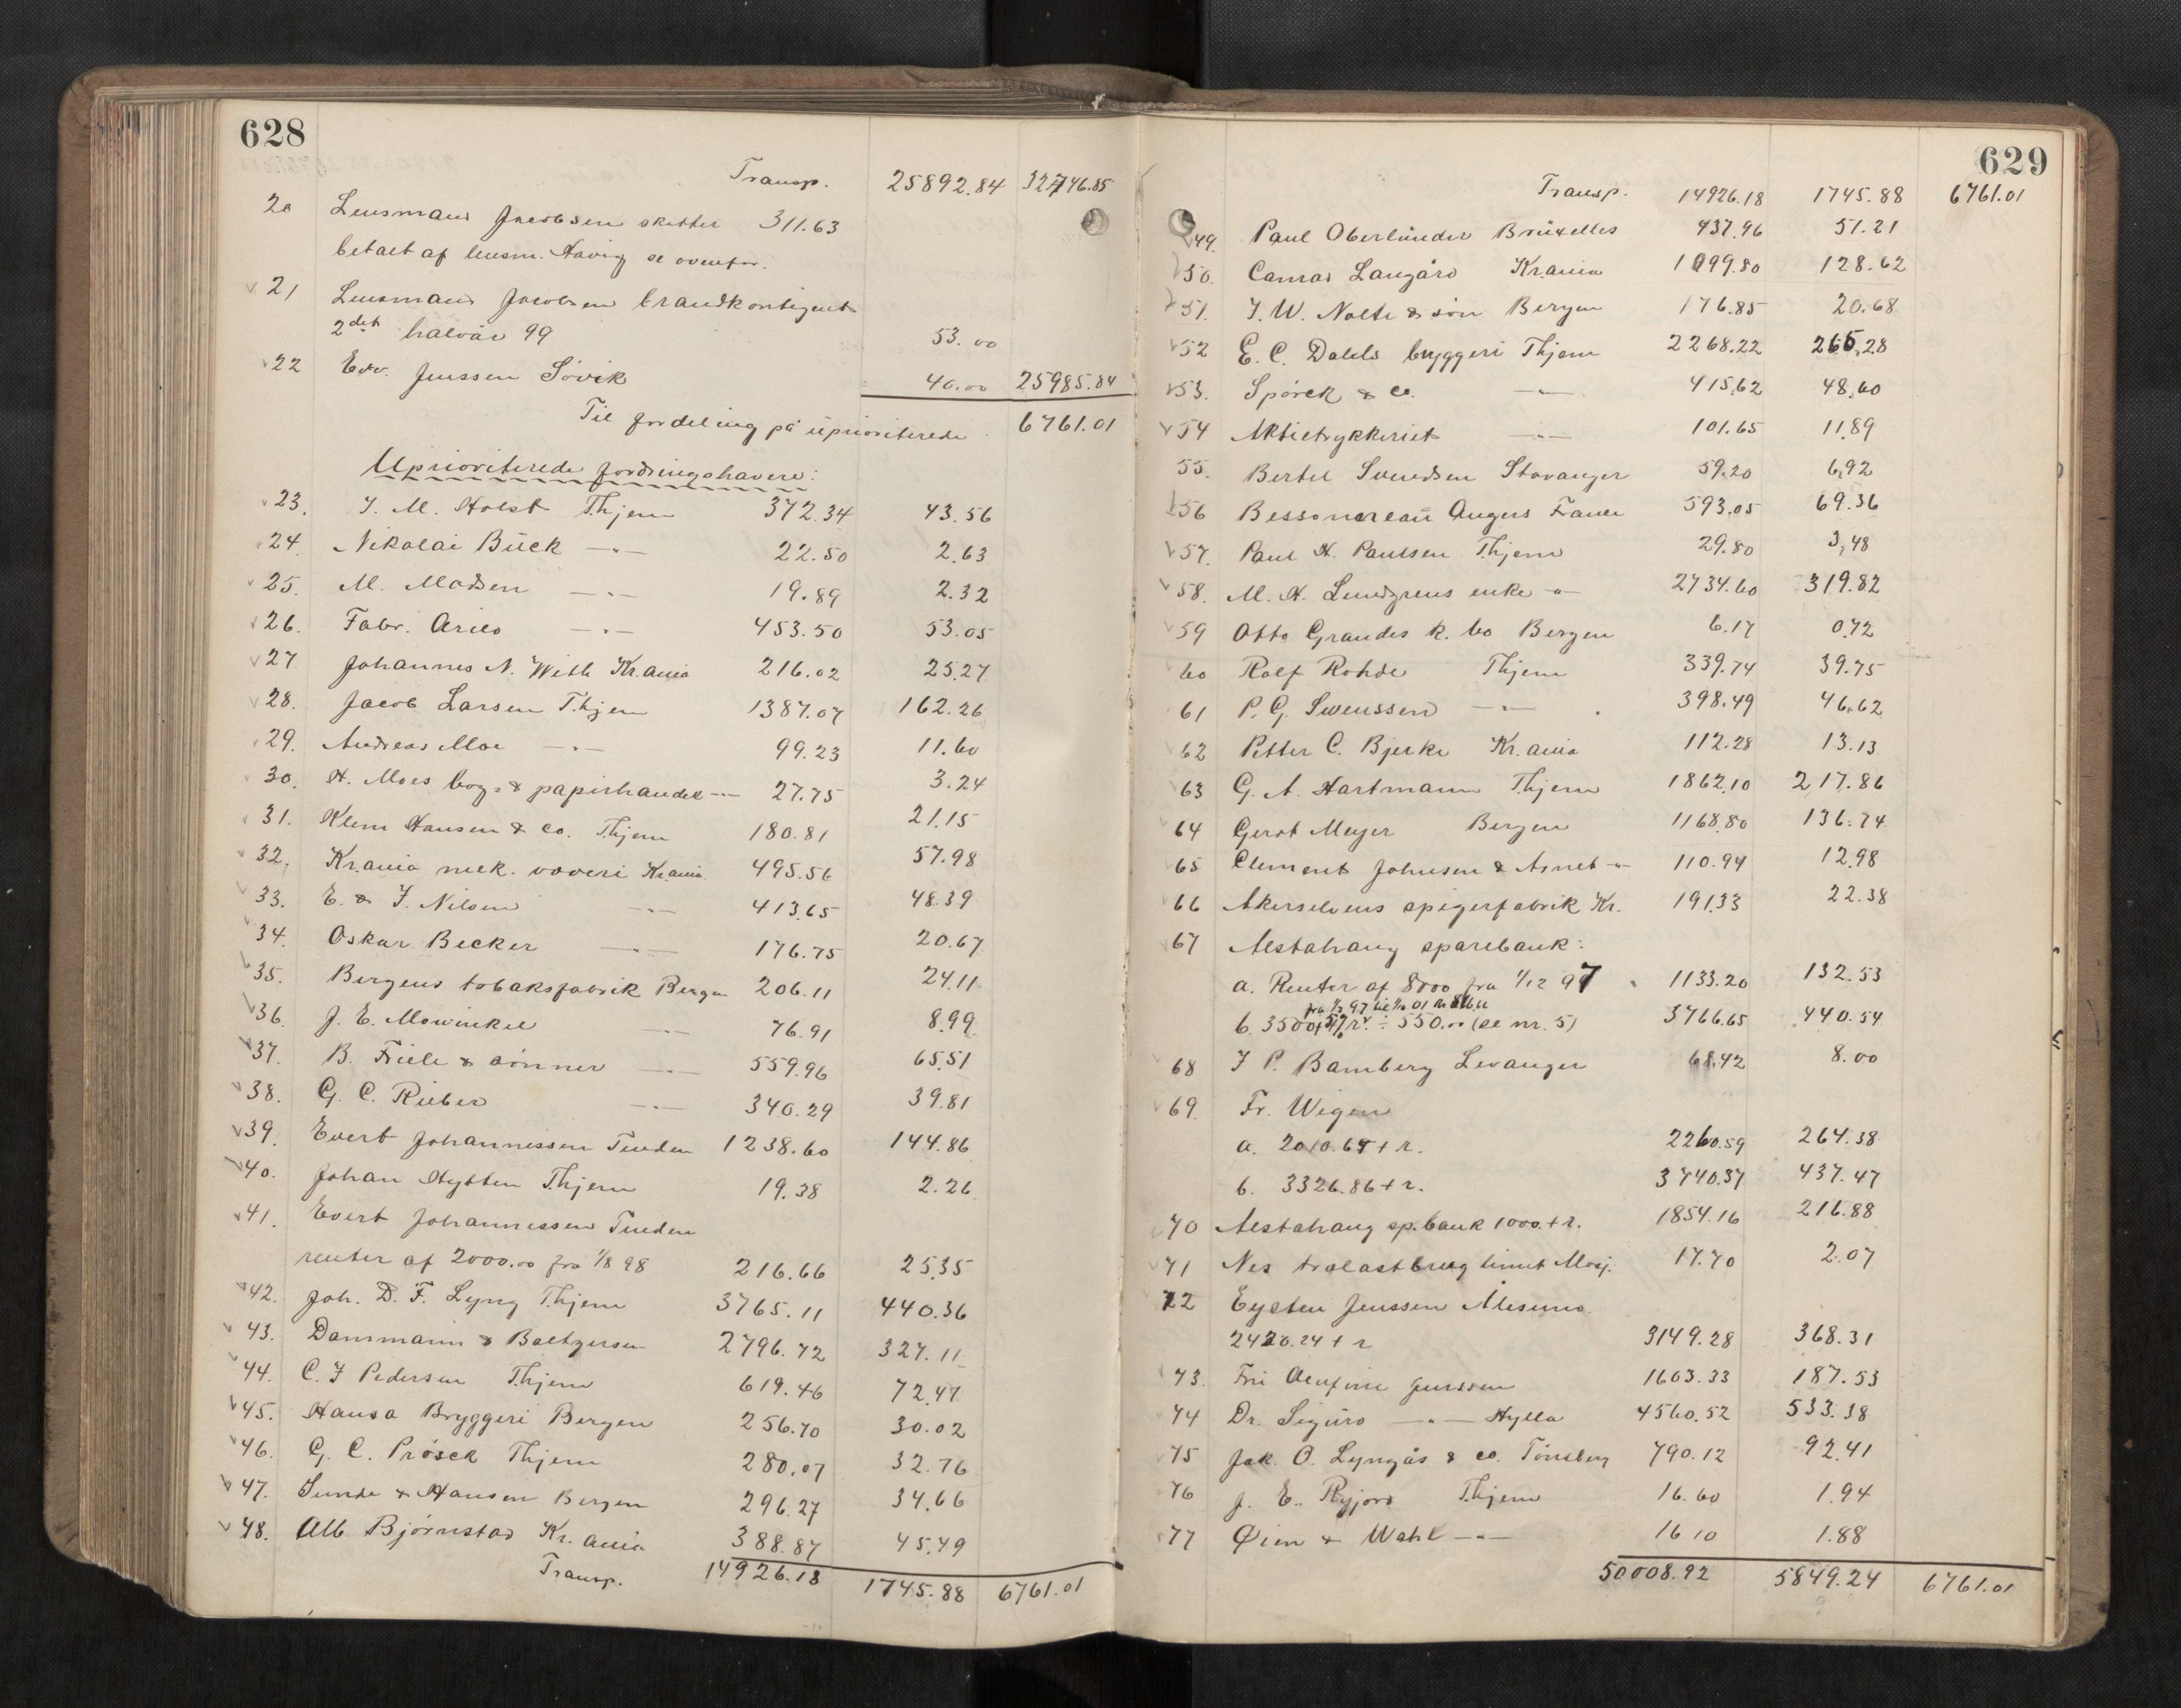 628
Transp. 25892.84 32746.85
20 Lensmand Jacobsen skatter 311.63
betalt af lensm. Havig se ovenfor.
21 Lensmand Jacobsen brandkontigent
2det halvår 99 53.00
22 Edv. Jenssen Søvik 40.00 25985.84
Til fordeling på upriorterede 6761.01
Upriorterede fordringshavere:
23. J. M. Holst Thjem 372.34 43.56
24. Nikolai Buck —"— 22.50 2.63
25. M. Madsen —"— 19.89 2.32
26. Fabr. Arild —"— 453.50 53.05
27. Johannes N. With Kr.ania 216.02 25.27
28. Jacob Larsen Thjem 1387.07 162.26
29. Andreas Moe —"— 99.23 11.60
30. H. Moes bog- & papirhandel —"— 27.75 3.24
31. Klem Hansen & co. Thjem 180.81 21.15
32. Kr.ania mek. væveri Kr.ania 495.56 57.98
33. E. & J. Nilsen —"— 413.65 48.39
34. Oskar Becker —"— 176.75 20.67
35. Bergens tobaksfabrik Bergen 206.11 24.11
36. J. E. Mowinkel —"— 76.91 8.99
37. B. Friele & sønner —"— 559.96 65.51
38. G. C. Rieber —"— 340.29 39.81
39. Evert Johannessen Tinden 1238.60 144.86
40. Johan Hytten Thjem 19.38 2.26
41. Evert Johannessen Tinden
renter af 2000.00 fra 1/8 98 216.66 25.35
42. Joh. D. F. Lyng Thjem 3765.11 440.36
43. Dammann & Baltzersen 2796.72 327.11
44. C. F Pedersen Thjem 619.46 72.47
45. Hansa Bryggeri Bergen 256.70 30.02
46. G. C. Prøsch Thjem 280.07 32.76
47. Sunde & Hansen Bergen 296.27 34.66
48. Alb Bjørnstad Kr.ania 388.87 45.49
Transp. 14926.18 1745.88 6761.01
629
Transp. 14926.18 1745.88 6761.01
49. Paul Oberlünder Brüxelles 437.96 51.21
50. Conrad Langård Kr.ania 1099.80 128.62
51. J. W. Nolte & søn Bergen 176.85 20.68
52 E. C. Dahls bryggeri Thjem 2268.22 265.28
53. Spørck & co. —"— 415.62 48.60
54 Aktietrykkeriet —"— 101.65 11.89
55. Bertel Svendsen Stavanger 59.20 6.92
56 Bessonneau Angers 593.05 69.36
57. Paul H. Paulsen Thjem 29.80 3.48
58. M. H. Lundgrens enke —"— 2734.60 319.82
59 Otto Grandes k. bo Bergen 6.17 0.72
60 Rolf Rohde Thjem 339.74 39.75
61 P. G. Swenssen —"— 398.49 46.62
62 Petter C. Bjerke Kr.ania 112.28 13.13
63 G. A. Hartmann Thjem 1862.10 217.86
64 Gerdt Meyer Bergen 1168.80 136.74
65 Clement Johnsen & Asmet —"— 110.94 12.98
66 Akerselvens spigerfabrik Kr. 191.33 22.38
67 Alstahaug sparebank:
a. Renter af 8000 fra 1/12 97 1133.20 132.53
b. 3500 + r. ÷ 550.00 (se nr. 5) 3766.65 440.54
68 J P. Bamberg Levanger 68.42 8.00
69. Fr. Wigen
a. 2010.65 + r. 2260.59 264.38
b. 3326.86 + r. 3740.37 437.47
70 Alstahaug sp.bank 1000 + r. 1854.16 216.88
71 Nes trælastbrug limit Mosj. 17.70 2.07
72 Eysten Jenssen Alsnes.
2420.24 + r 3149.28 368.31
73. Frú Jenssen 1603.33 187.53
74 Dr. Sigurd —"— Hylla 4560.52 533.38
75 Jak. O. Lyngås & co. Tønsberg 790.12 92.41
76 J. E. Ryjord Thjem 16.60 1.94
77 Øien & Wahl —"— 16 10 1.88
50008.92 5849.24 6761.01